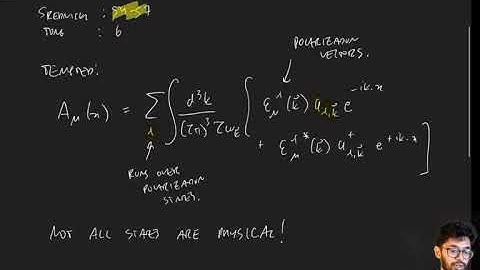 SREDNICKI : 54-57
TONG : 6
TEMPTED:
POLARIZATION VECTORS.
A_μ(x) = ∑_λ ∫ d³k/(2π)³2ω_k [ ε_μ^λ(k⃗) a_{λ,k⃗} e^{-ik·x}
+ ε_μ^{λ*}(k⃗) a^†_{λ,k⃗} e^{+ik·x} ]
RUNS OVER
POLARIZATION
STATES.
NOT ALL STATES ARE PHYSICAL!